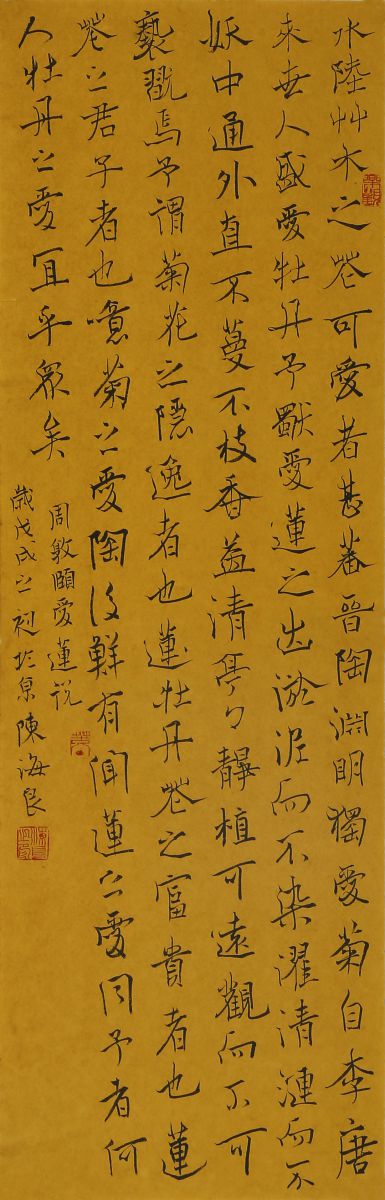 水陸艸木之花可愛者甚蕃晉陶淵明獨愛菊自李唐
來世人盛愛牡丹予獨愛蓮之出淤泥而不染濯清漣而不
妖中通外直不蔓不枝香益清亭々靜植可遠觀而不可
褻翫焉予謂菊花之隱逸者也蓮牡丹花之富貴者也蓮
花之君子者也噫菊之愛陶后鮮有聞蓮之愛同予者何
人牡丹之愛宜乎眾矣
周敦頤愛蓮說
歲戊戌之初於京陳海良